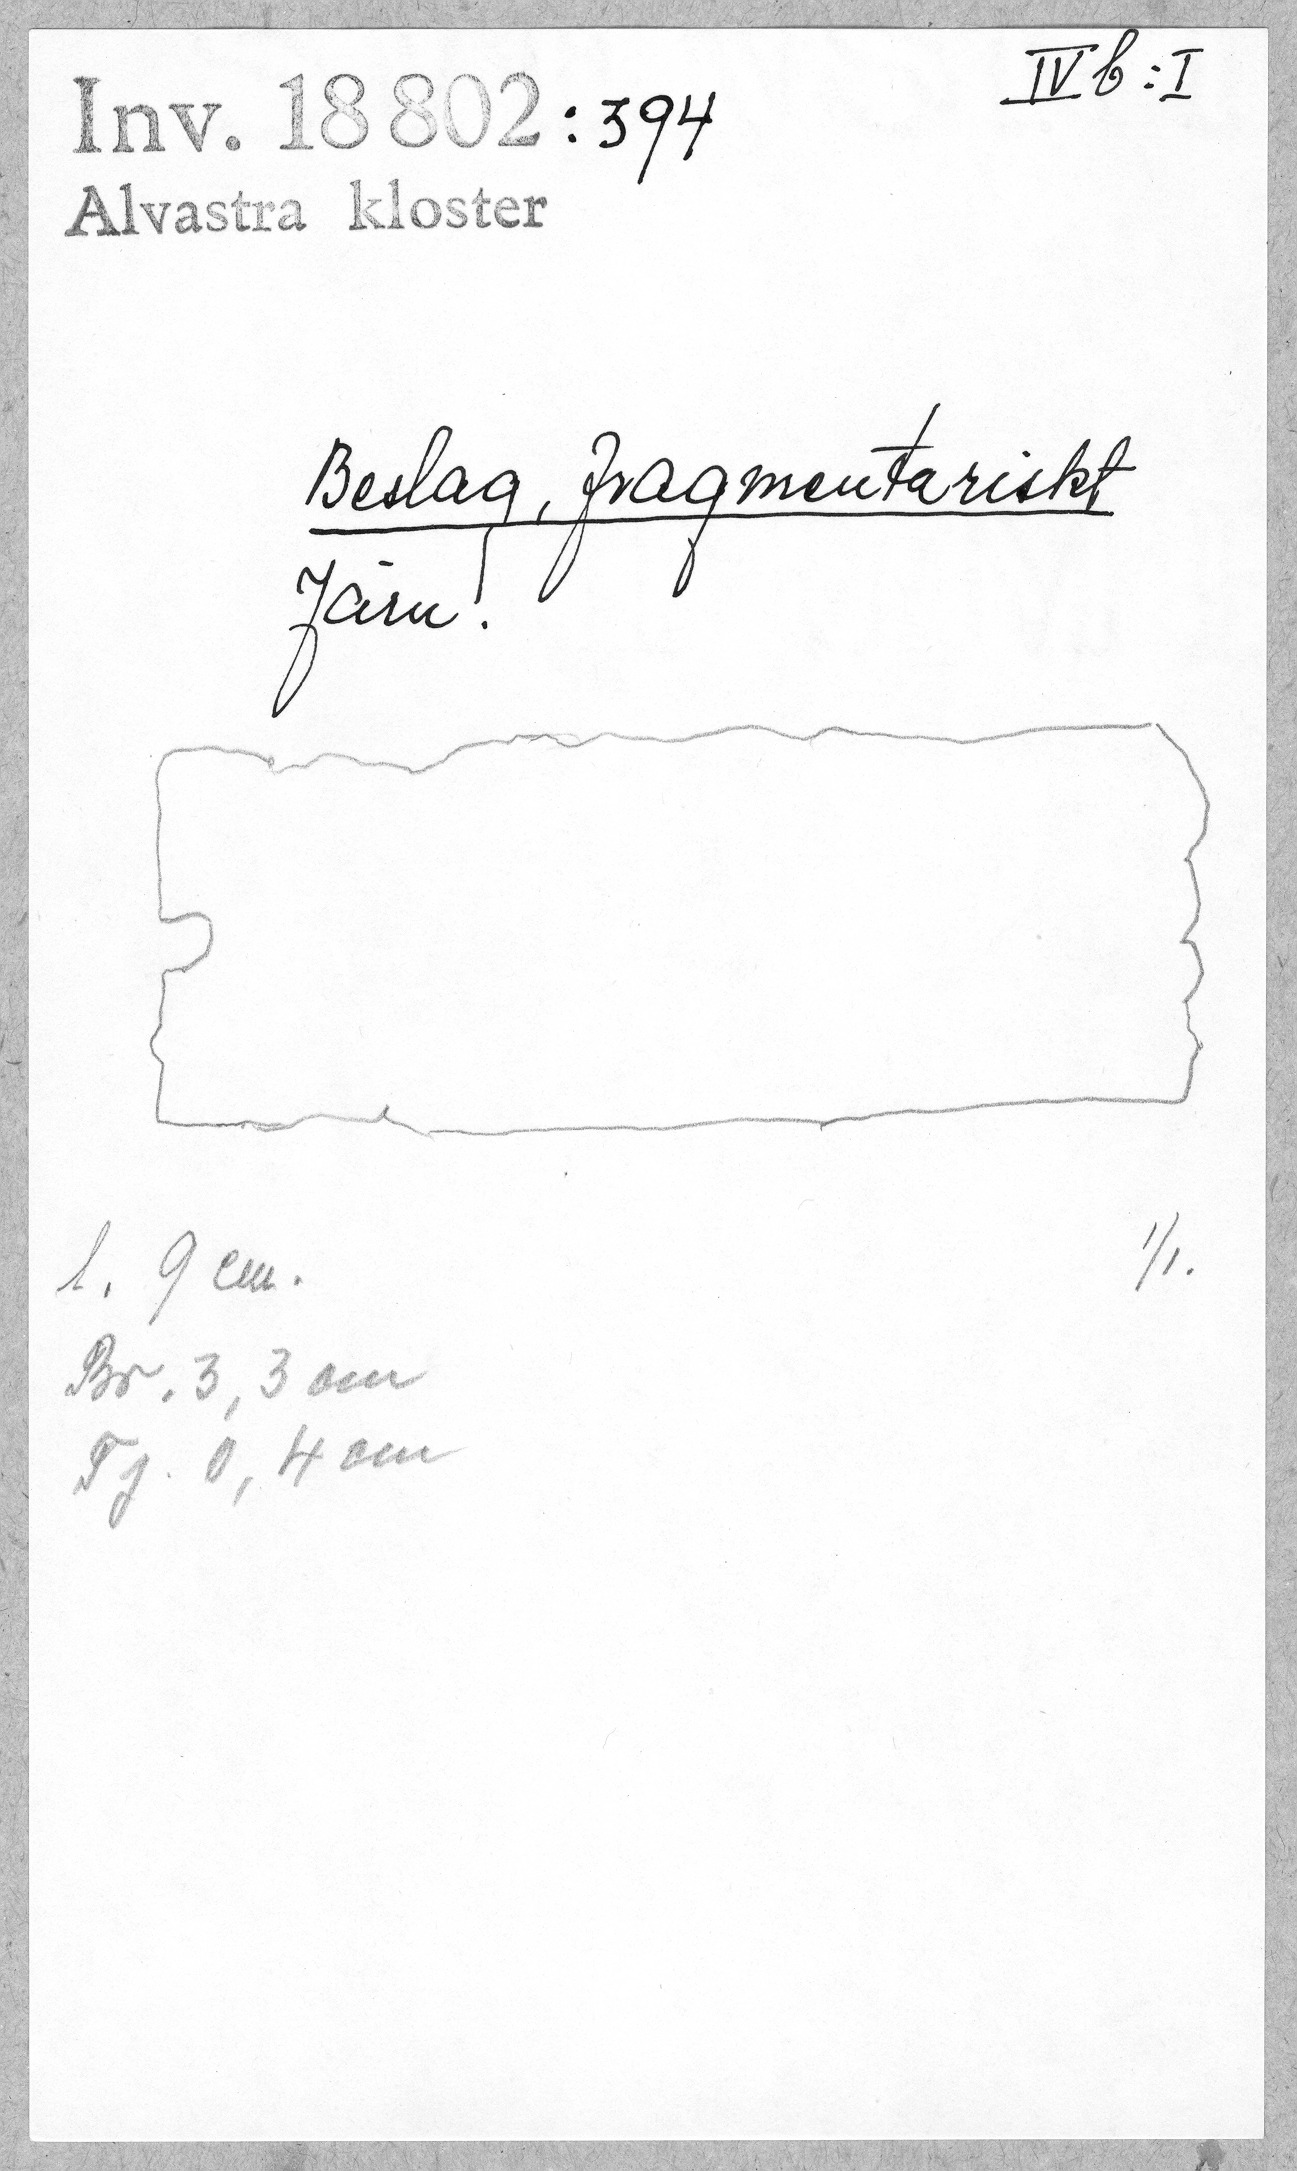 IV b:I
Inv. 18 802:394
Alvastra kloster
Beslag, fragmentariskt
Järn!
l. 9 cm.
1/1.
Br. 3,3 cm
Tj. 0,4 cm